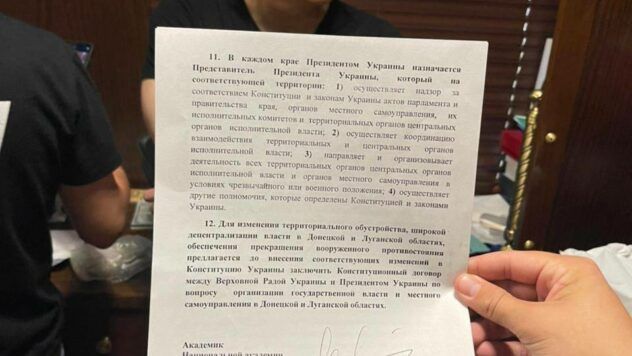 11. В каждом крае Президентом Украины назначается
Представитель Президента Украины, который на
соответствующей территории: 1) осуществляет надзор за
соответствием Конституции и законам Украины актов парламента и
правительства края, органов местного самоуправления, их
исполнительных комитетов и территориальных органов центральных
органов исполнительной власти; 2) осуществляет координацию
взаимодействия территориальных и центральных органов
исполнительной власти; 3) направляет и организовывает
деятельность всех территориальных органов центральных органов
исполнительной власти и органов местного самоуправления в
условиях чрезвычайного или военного положения; 4) осуществляет
другие полномочия, которые определены Конституцией и законами
Украины.
12. Для изменения территориального обустройства, широкой
децентрализации власти в Донецкой и Луганской областях,
обеспечения прекращения вооруженного противостояния
предлагается до внесения соответствующих изменений в
Конституцию Украины заключить Конституционный договор
между Верховной Радой Украины и Президентом Украины по
вопросу организации государственной власти и местного
самоуправления в Донецкой и Луганской областях.
Академик
Национальной академии